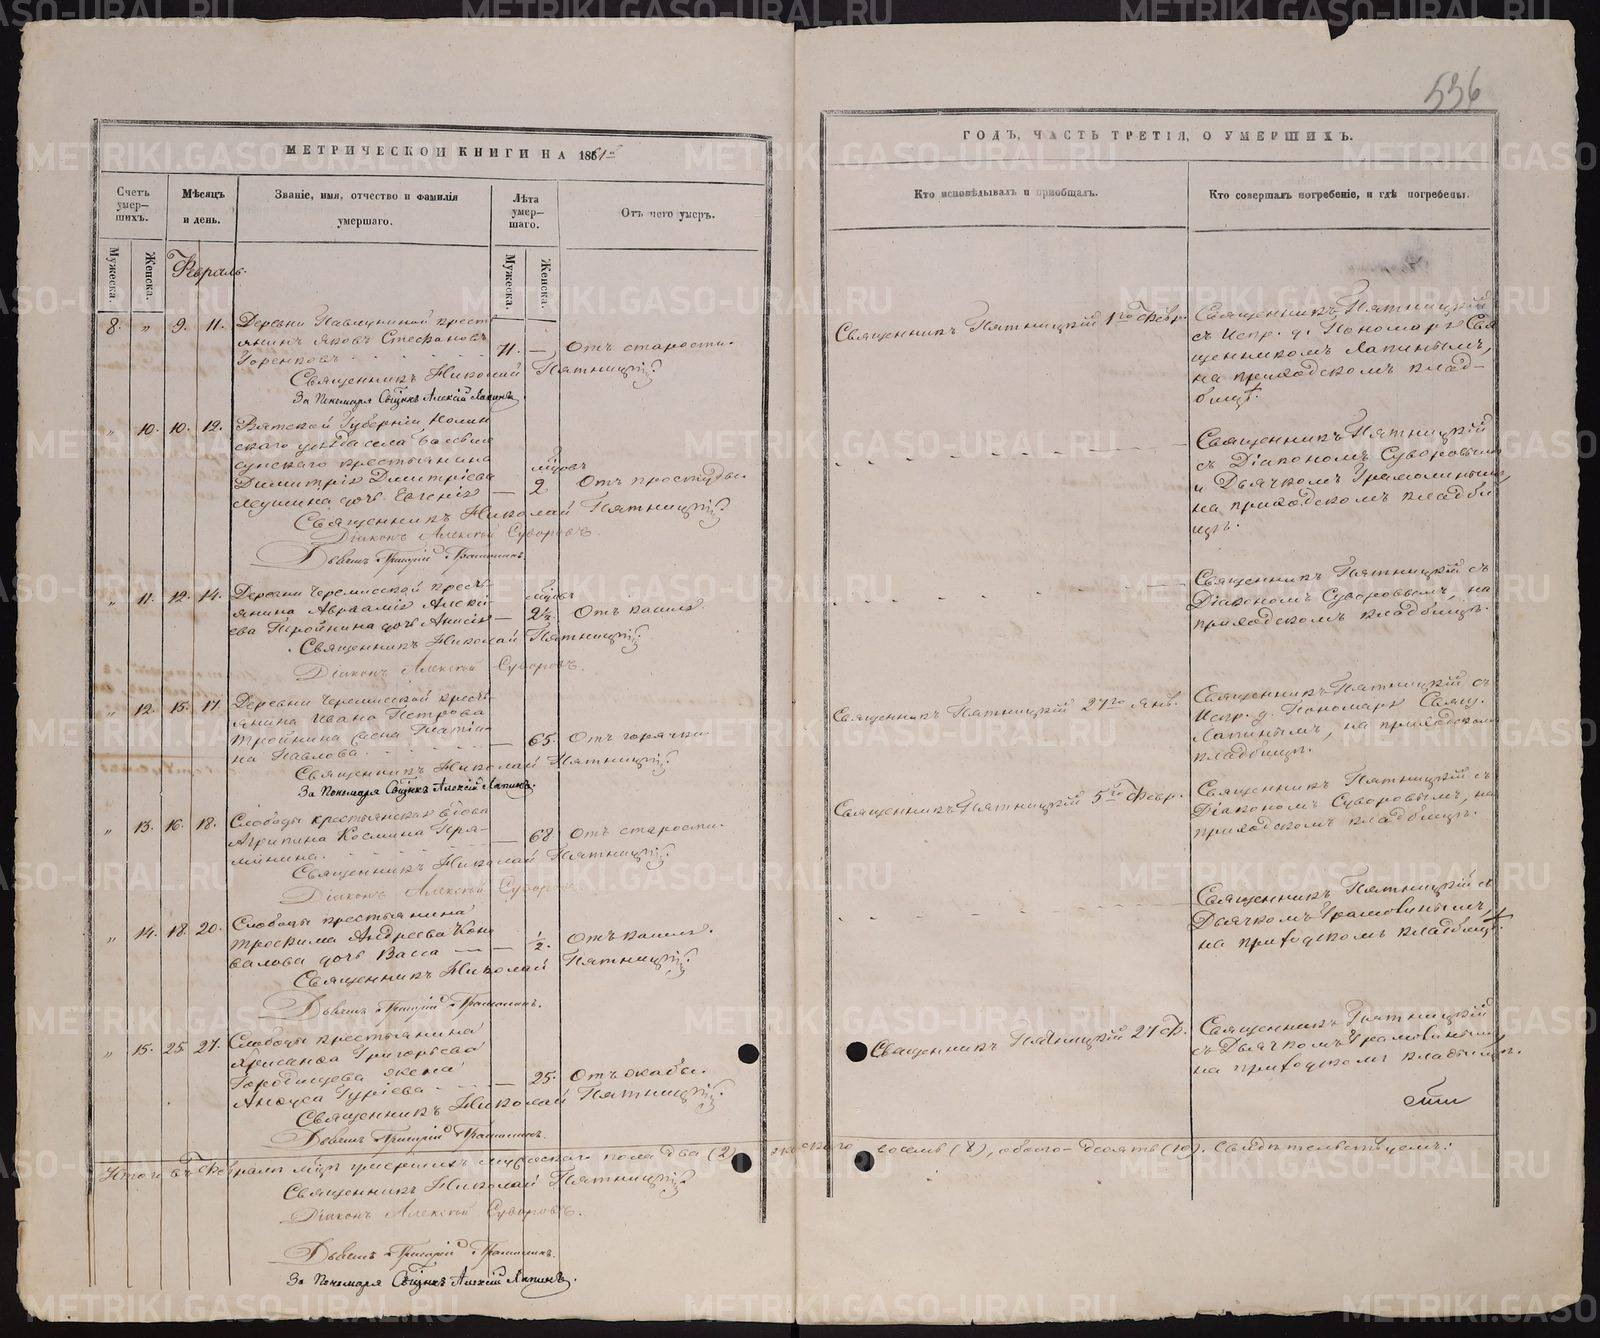 536
МЕТРИЧЕСКОЙ КНИГИ НА 1861й
Счетъ умер-шихъ.
Мѣсяцъ и день.
Званіе, имя, отчество и фамилія умершаго.
Лѣта умер-шаго.
Отъ чего умеръ.
Мужеска.
Женска.
Мужеска.
Женска.
Февраль.
8. „ 9. 11. Деревни Павлушиной кресть
янинъ Яковъ Стефановъ
71. — Отъ старости.
Священникъ Николай Пятницкій
За Пономаря Свщнкъ Алексій Лапинъ.
„ 10. 10. 12. Вятской Губерніи, Нолин
скаго уѣзда села
крестьянина
Димитрія Дмитріева
дочь Евгенія — мцовъ 2 Отъ простуды.
Священникъ Николай Пятницкій
Діаконъ Алексей Суворовъ.
Дьячекъ Григорій
„ 11. 12. 14. Деревни Черемисской кресть-
янина Авраамія Алексі-
ева Тройнина дочь Анисія — мцовъ 2½. Отъ кашля.
Священникъ Николай Пятницкій
Діаконъ Алексей Суворовъ.
„ 12. 15. 17. Деревни Черемисской кресть-
янина Ивана Петрова
Тройнина жена Татія-
на Павлова. — 65. Отъ горячки.
Священникъ Николай Пятницкій
За Пономаря Свщнкъ Алексій Лапинъ.
„ 13. 16. 18. Слободы крестьянская вдова
Агрипина Космина
— 68 Отъ старости.
Священникъ Николай Пятницкій
Діаконъ Алексей Суворовъ
„ 14. 18. 20. Слободы крестьянина
Трофима Андреева Коно
валова дочь Васса — — ½. Отъ кашля.
Священникъ Николай Пятницкій
Дьячекъ Григорій
„ 15. 25. 27. Слободы крестьянина
Хрисанфа Григорьева
Городищева жена
Анфуса Гуріева — 25. Отъ жабы.
Священникъ Николай Пятницкій
Дьячекъ Григорій
Итого въ Февралѣ мцѣ умершихъ мужескаго пола два (2) женскаго восемь (8), обоего десять (10). Свидѣтельствуемъ:
Священникъ Николай Пятницкій
Діаконъ Алексей Суворовъ.
Дьячекъ Григорій
За Пономаря Свщнкъ Алексій Лапинъ.
ГОДЪ, ЧАСТЬ ТРЕТІЯ, О УМЕРШИХЪ.
Кто исповѣдывалъ и пріобщалъ.
Кто совершалъ погребеніе, и гдѣ погребены.
Священникъ Пятницкій 1го Февр.
Священникъ Пятницкій
съ Испр. д. Пономаря Свя
щенникомъ Лапинымъ,
на приходскомъ клад-
бищѣ.
Священникъ Пятницкій
съ Діакономъ Суворовымъ
и Дьячкомъ
на приходскомъ кладби
щѣ.
Священникъ Пятницкій съ
Діакономъ Суворовымъ, на
приходскомъ кладбищѣ.
Священникъ Пятницкій 27го Янв.
Священникъ Пятницкій, съ
Испр. д. Пономаря Свящ.
Лапинымъ, на приходскомъ
кладбищѣ.
Священникъ Пятницкій 5го Февр.
Священникъ Пятницкій съ
Діакономъ Суворовымъ, на
приходскомъ кладбищѣ.
Священникъ Пятницкій съ
Дьячкомъ
на приходскомъ кладбищѣ.
Священникъ Пятницкій 27 Ф.
Священникъ Пятницкій
съ Дьячкомъ
на приходскомъ кладбищѣ.
METRIKI.GASO-URAL.RU